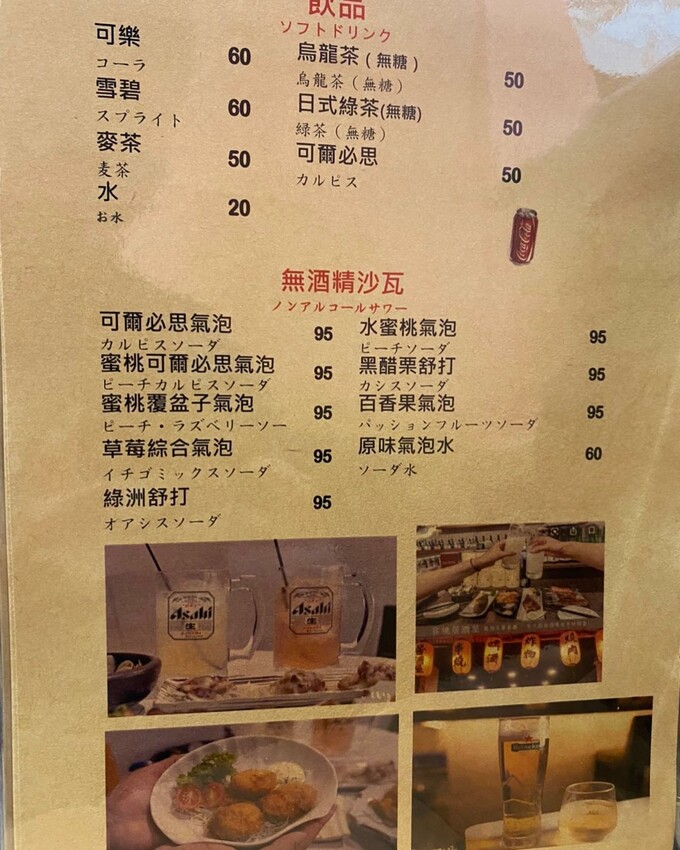 飲品
ソフトドリンク
可樂 60
コーラ
雪碧 60
スプライト
麥茶 50
麦茶
水 20
お水
烏龍茶(無糖)
烏龍茶(無糖) 50
日式綠茶(無糖)
緑茶(無糖) 50
可爾必思
カルピス 50
Coca-Cola
無酒精沙瓦
ノンアルコールサワー
可爾必思氣泡 95
カルピスソーダ
蜜桃可爾必思氣泡 95
ピーチカルピスソーダ
蜜桃覆盆子氣泡 95
ピーチ・ラズベリーソー
草莓綜合氣泡 95
イチゴミックスソーダ
綠洲舒打 95
オアシスソーダ
水蜜桃氣泡 95
ピーチソーダ
黑醋栗舒打 95
カシスソーダ
百香果氣泡 95
パッションフルーツソーダ
原味氣泡水 60
ソーダ水
Asahi
生
Asahi
生
串燒
啤酒
炸物
燒肉